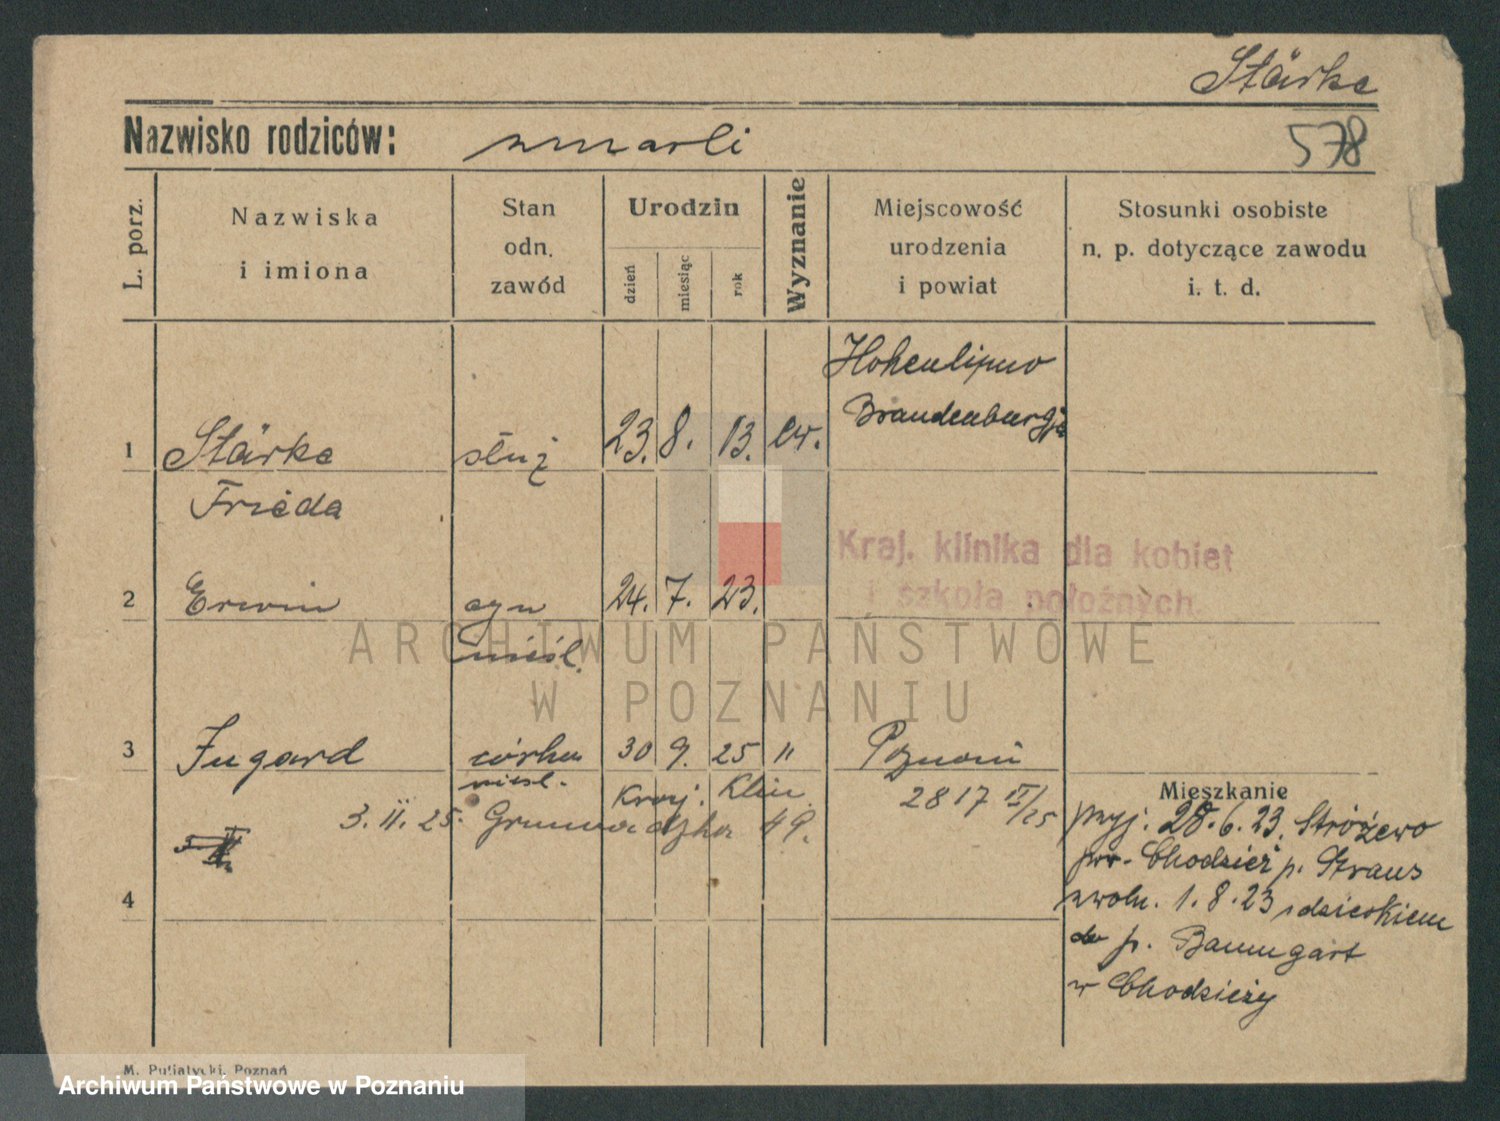 Stärke
Nazwisko rodziców: zmarli
578
L. porz.
Nazwiska
i imiona
Stan
odn.
zawód
Urodzin
dzień
miesiąc
rok
Wyznanie
Miejscowość
urodzenia
i powiat
Stosunki osobiste
n. p. dotyczące zawodu
i. t. d.
Hohenlipuw
Brandenburgja
1 Stärke służ 23. 8. 13. ew.
Frieda
Kraj. klinika dla kobiet
i szkoła położnych.
2 Erwin syn 24. 7. 23.
nieśl.
ARCHIWUM PAŃSTWOWE
W POZNANIU
3 Irmgard córka 30 9. 25 " Poznań
niesl. Kraj. Klin.
3. II. 25. Grunwaldzka 49. 2817 II/25
Mieszkanie
przj. 28.6.23. Stróżewo
pow. Chodzież p. Straus
zwoln. 1.8.23 z dzieckiem
do p. Baumgart
w Chodzieży
4
M. Putiatycki, Poznań
Archiwum Państwowe w Poznaniu